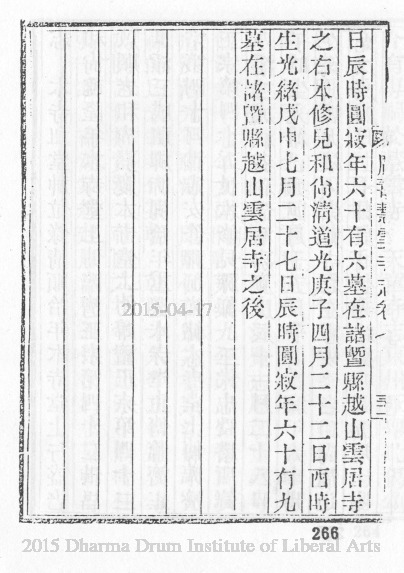 日辰時圓寂年六十有六墓在諸暨縣越山雲居寺
之右本修見和尙淸道光庚子四月二十二日酉時
生光緖戊申七月二十七日辰時圓寂年六十有九
墓在諸暨縣越山雲居寺之後
2015-04-17
266
2015 Dharma Drum Institute of Liberal Arts